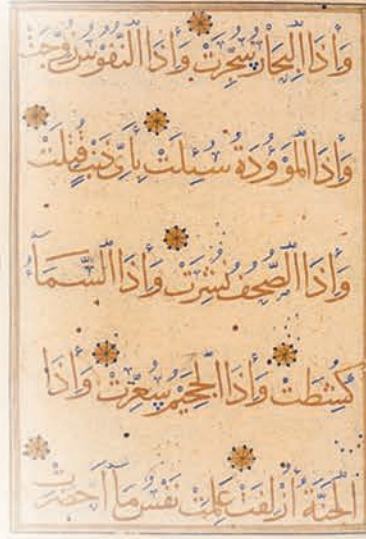 وَإِذَا الْبِحَارُ سُجِّرَتْ وَإِذَا النُّفُوسُ زُوِّجَتْ
وَإِذَا الْمَوْءُودَةُ سُئِلَتْ بِأَيِّ ذَنْبٍ قُتِلَتْ
وَإِذَا الصُّحُفُ نُشِرَتْ وَإِذَا السَّمَاءُ
كُشِطَتْ وَإِذَا الْجَحِيمُ سُعِّرَتْ وَإِذَا
الْجَنَّةُ أُزْلِفَتْ عَلِمَتْ نَفْسٌ مَا أَحْضَرَتْ